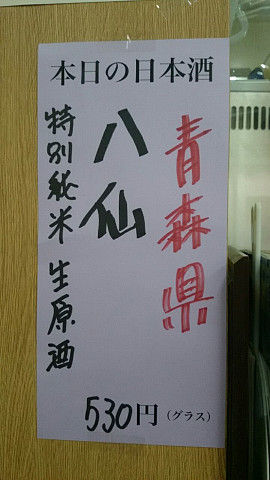 本日の日本酒
青森県
八仙
特別純米 生原酒
530円(グラス)